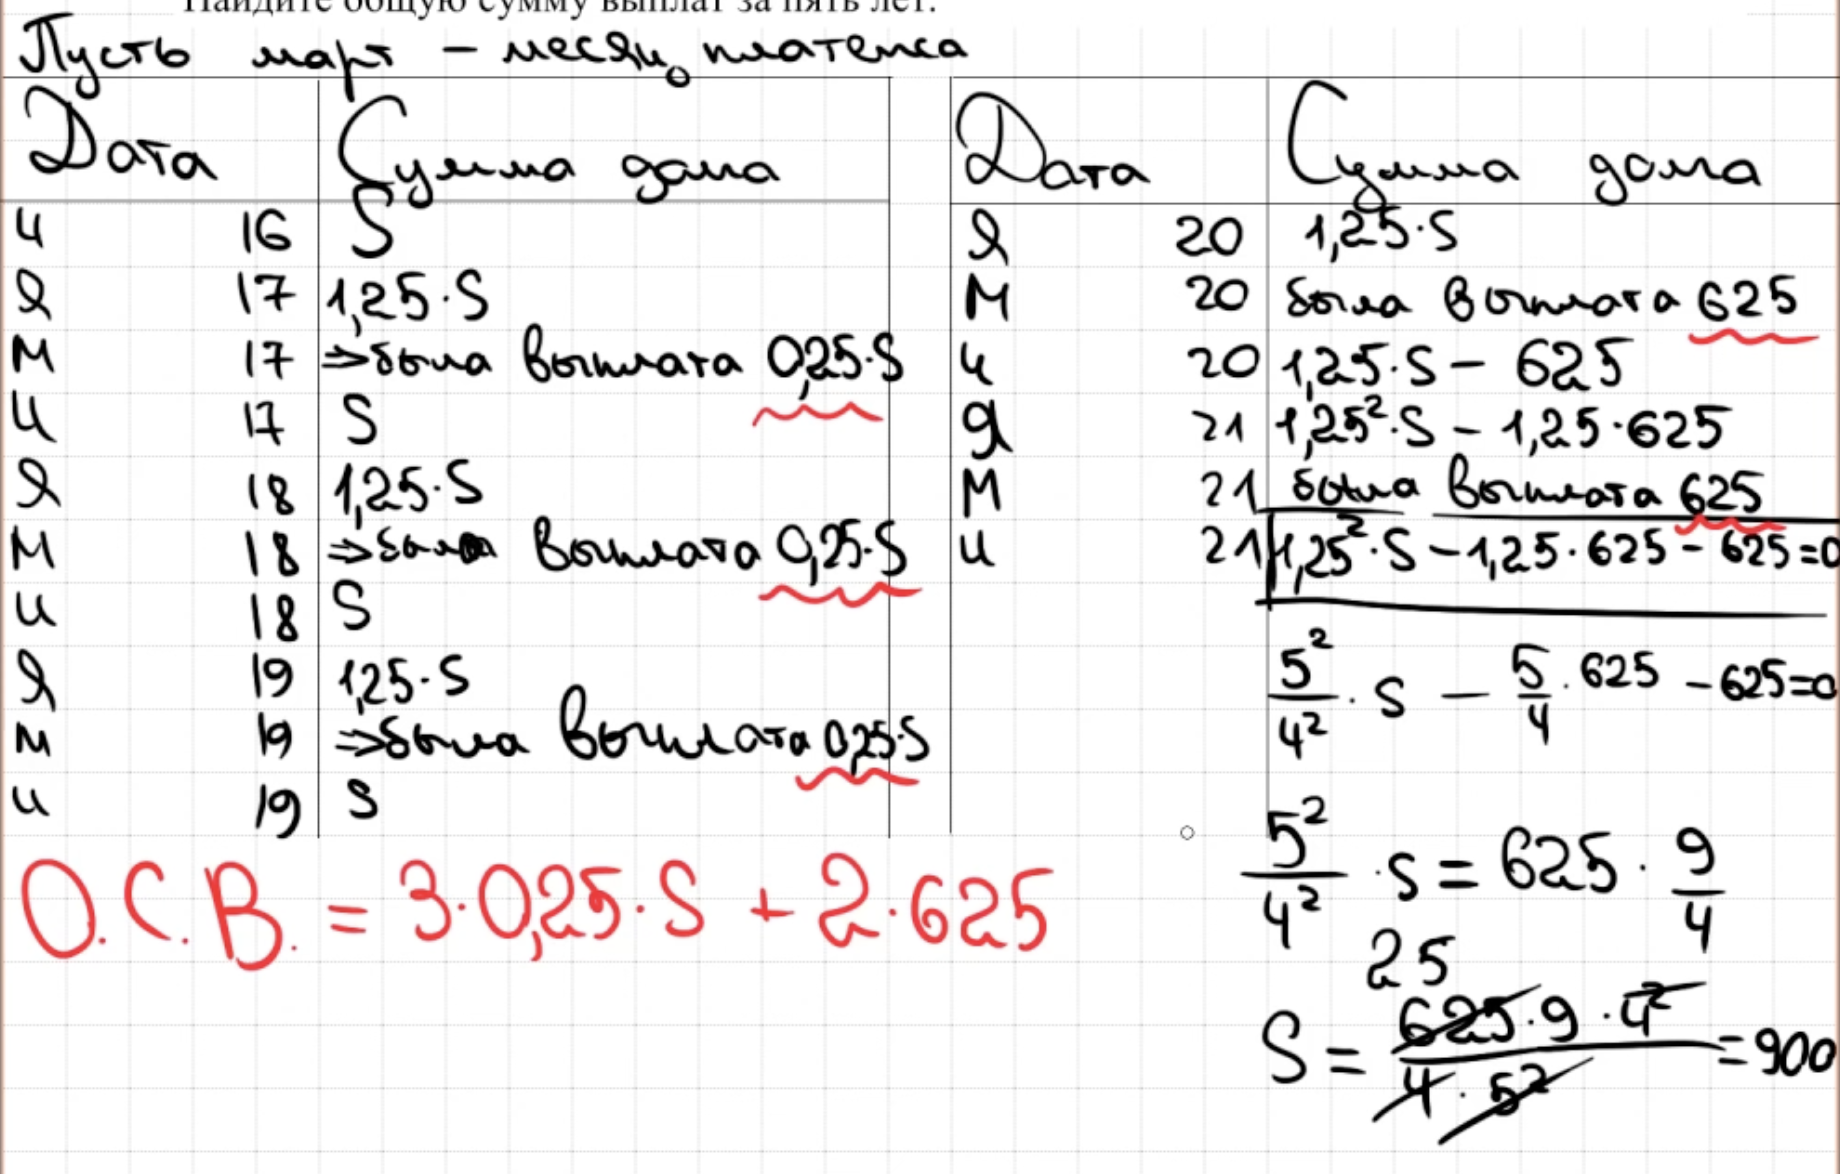 Найдите общую сумму выплат за пять лет.
Пусть март – месяц платежа
Дата Сумма долга
И 16 S
Я 17 1,25·S
М 17 ⇒была выплата 0,25·S
И 17 S
Я 18 1,25·S
М 18 ⇒была выплата 0,25·S
И 18 S
Я 19 1,25·S
М 19 ⇒была выплата 0,25·S
И 19 S
Дата Сумма долга
Я 20 1,25·S
М 20 была выплата 625
И 20 1,25·S – 625
Я 21 1,25²·S – 1,25·625
М 21 была выплата 625
И 21 1,25²·S – 1,25·625 – 625=0
5²/4² · S – 5/4 · 625 – 625=0
5²/4² · S = 625 · 9/4
25
S = 625·9·4²/4·5² = 900
О.С.В. = 3·0,25·S + 2·625